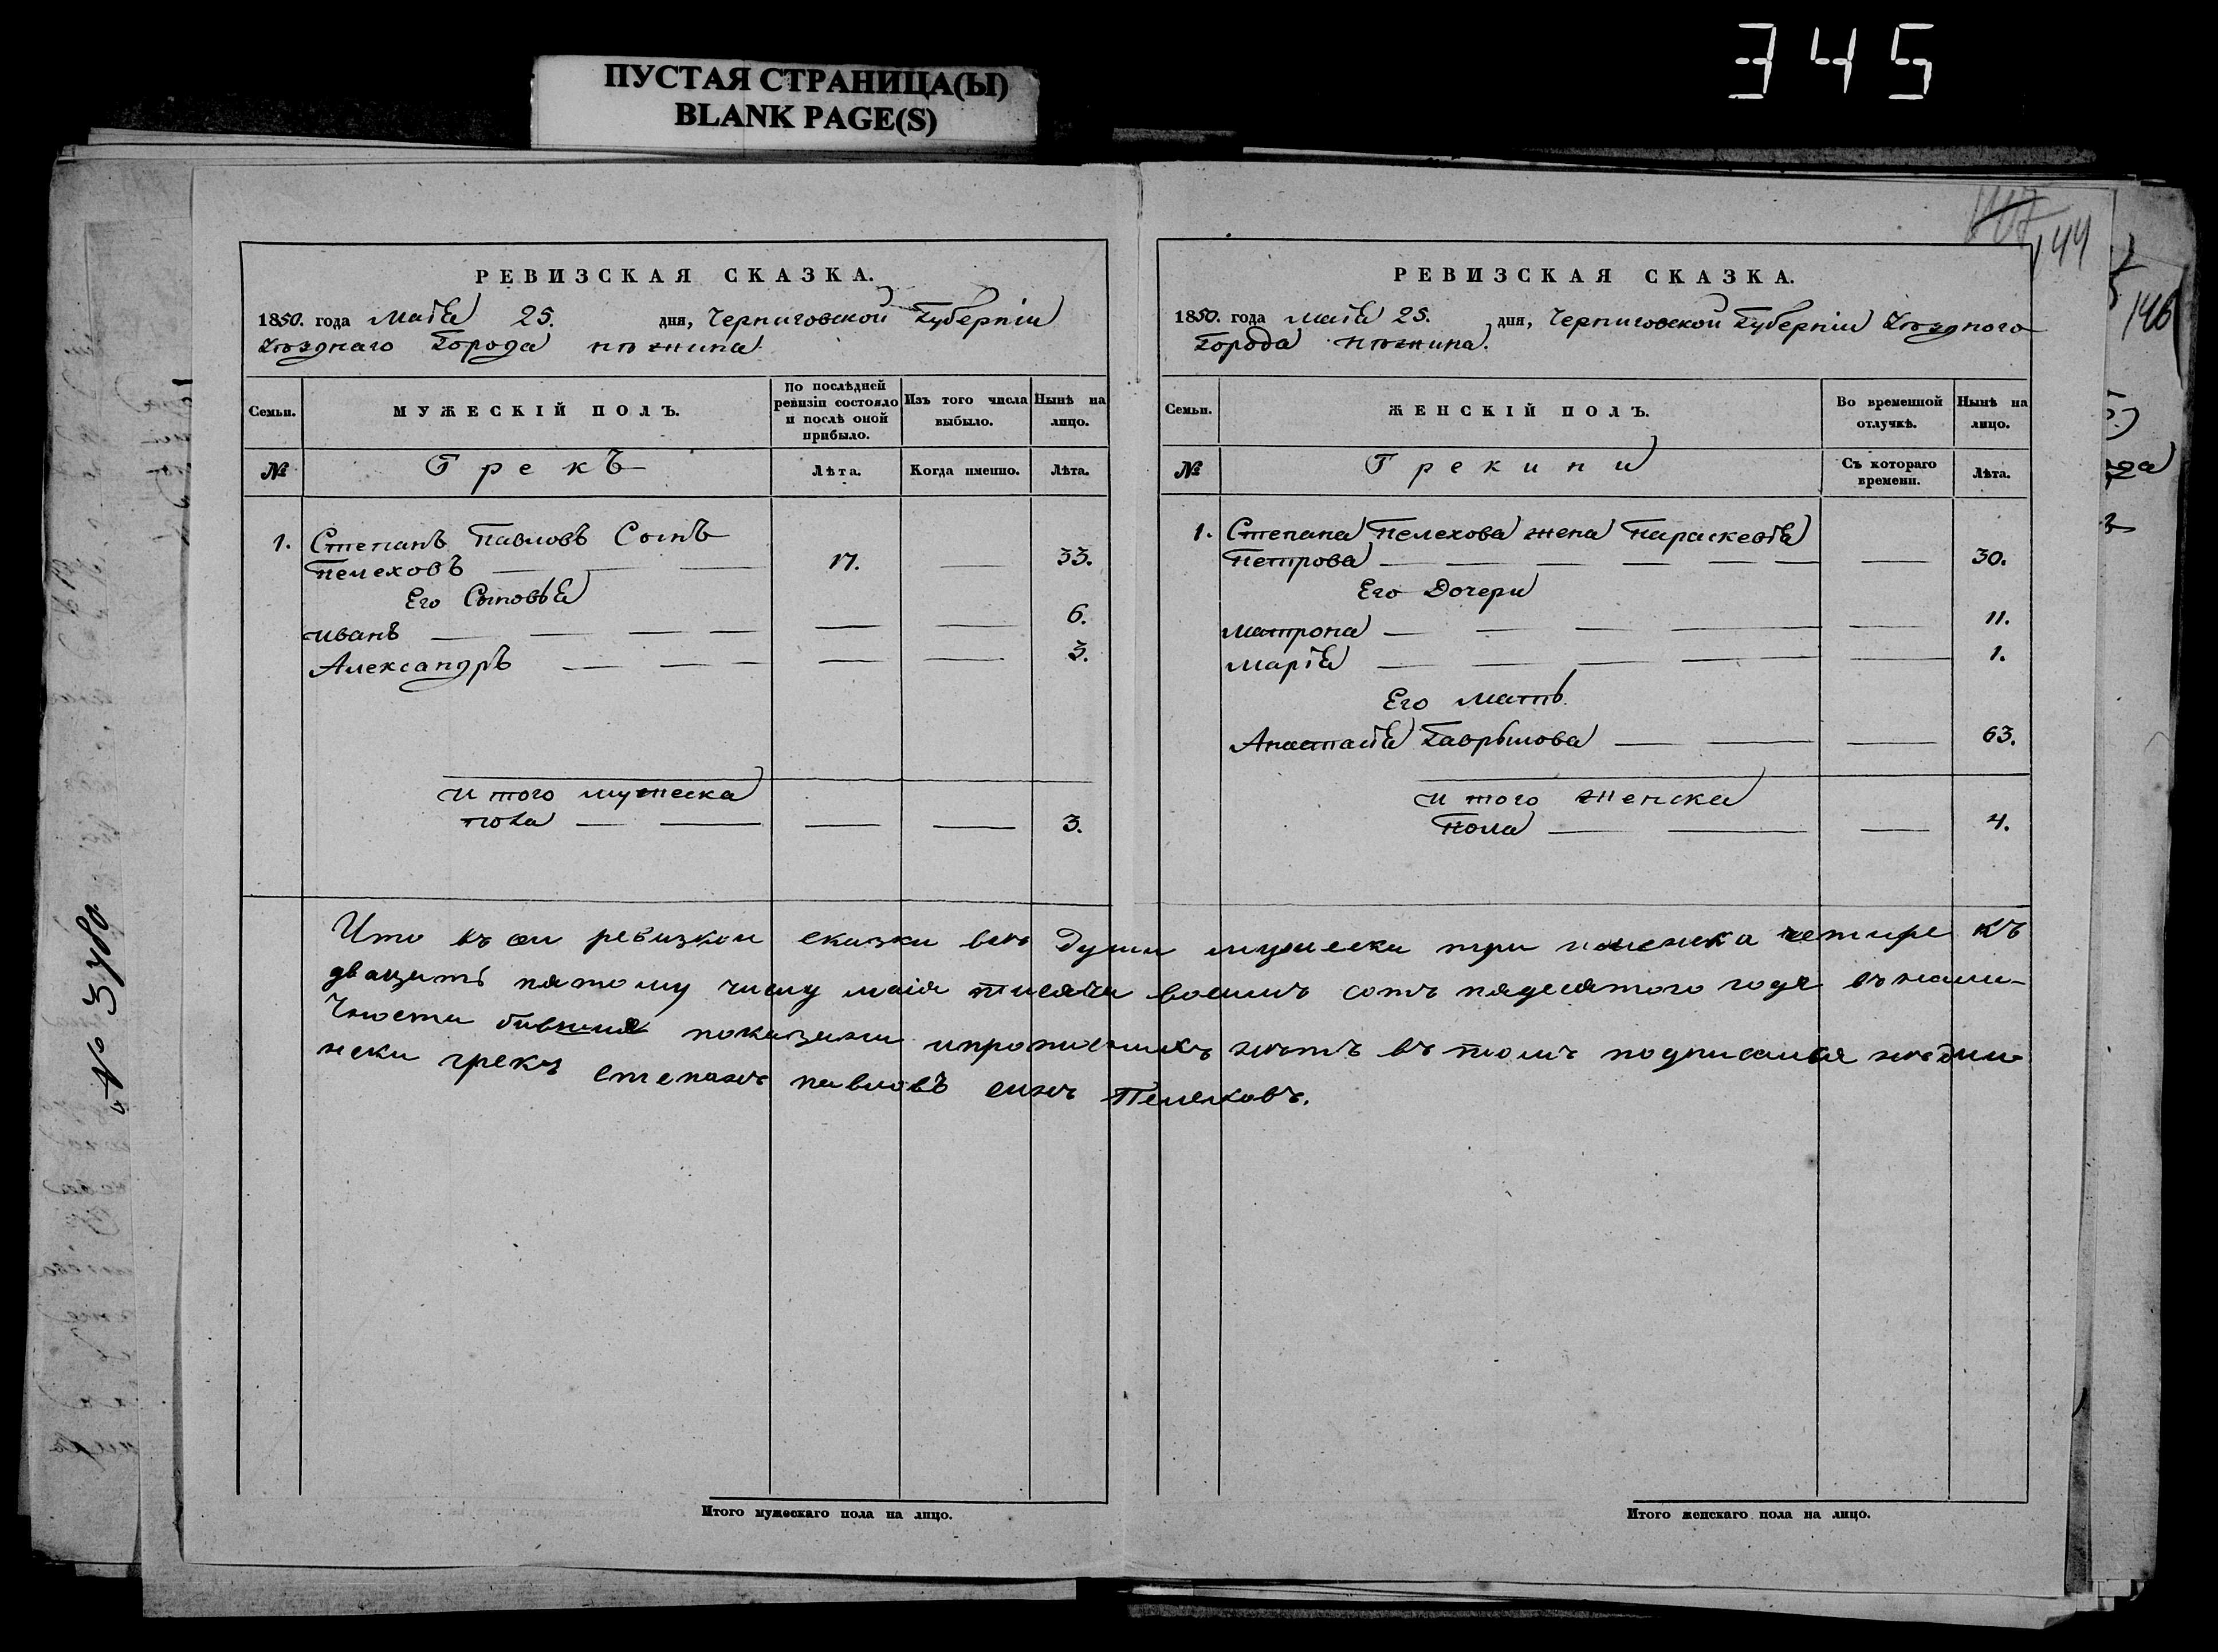 345
ПУСТАЯ СТРАНИЦА(Ы)
BLANK PAGE(S)
144
146
РЕВИЗСКАЯ СКАЗКА.
1850. года Маія 25. дня, Черниговской Губерніи
Уѣзднаго Города Нѣжина
Семьи.
МУЖЕСКІЙ ПОЛЪ.
По послѣдней ревизіи состояло и послѣ оной прибыло.
Изъ того числа выбыло.
Нынѣ на лицо.
№
Грекъ
Лѣта.
Когда именно.
Лѣта.
1. Степанъ Павловъ Сынъ
Пелеховъ — — — 17. — 33.
Его Сыновья
Иванъ — — — — — — 6.
Александръ — — — — — 3.
И того мужеска
пола — — — — 3.
РЕВИЗСКАЯ СКАЗКА.
1850. года Маія 25. дня, Черниговской Губерніи Уѣздного
Города Нѣжина.
Семьи.
ЖЕНСКІЙ ПОЛЪ.
Во временной отлучкѣ.
Нынѣ на лицо.
№
Грекини
Съ котораго времени.
Лѣта.
1. Степана Пелехова жена Параскевія
Петрова — — — — — — — 30.
Его Дочери
Матрона — — — — — 11.
Марія — — — — — 1.
Его Мать
Анастасія Гаврылова — — — 63.
И того Женска
Пола — — — 4.
Что въ сеи ревизкои сказки все Души мужеска три и женска четире къ
двацить пятому числу маія тисяча восимъ сотъ пядесятого года въ нали-
чности бившия показани ипрописнихъ нѣтъ въ томъ подписался нѣжин-
нски грекъ степанъ павловъ синъ Пелеховъ.
Итого мужескаго пола на лицо.
Итого женскаго пола на лицо.